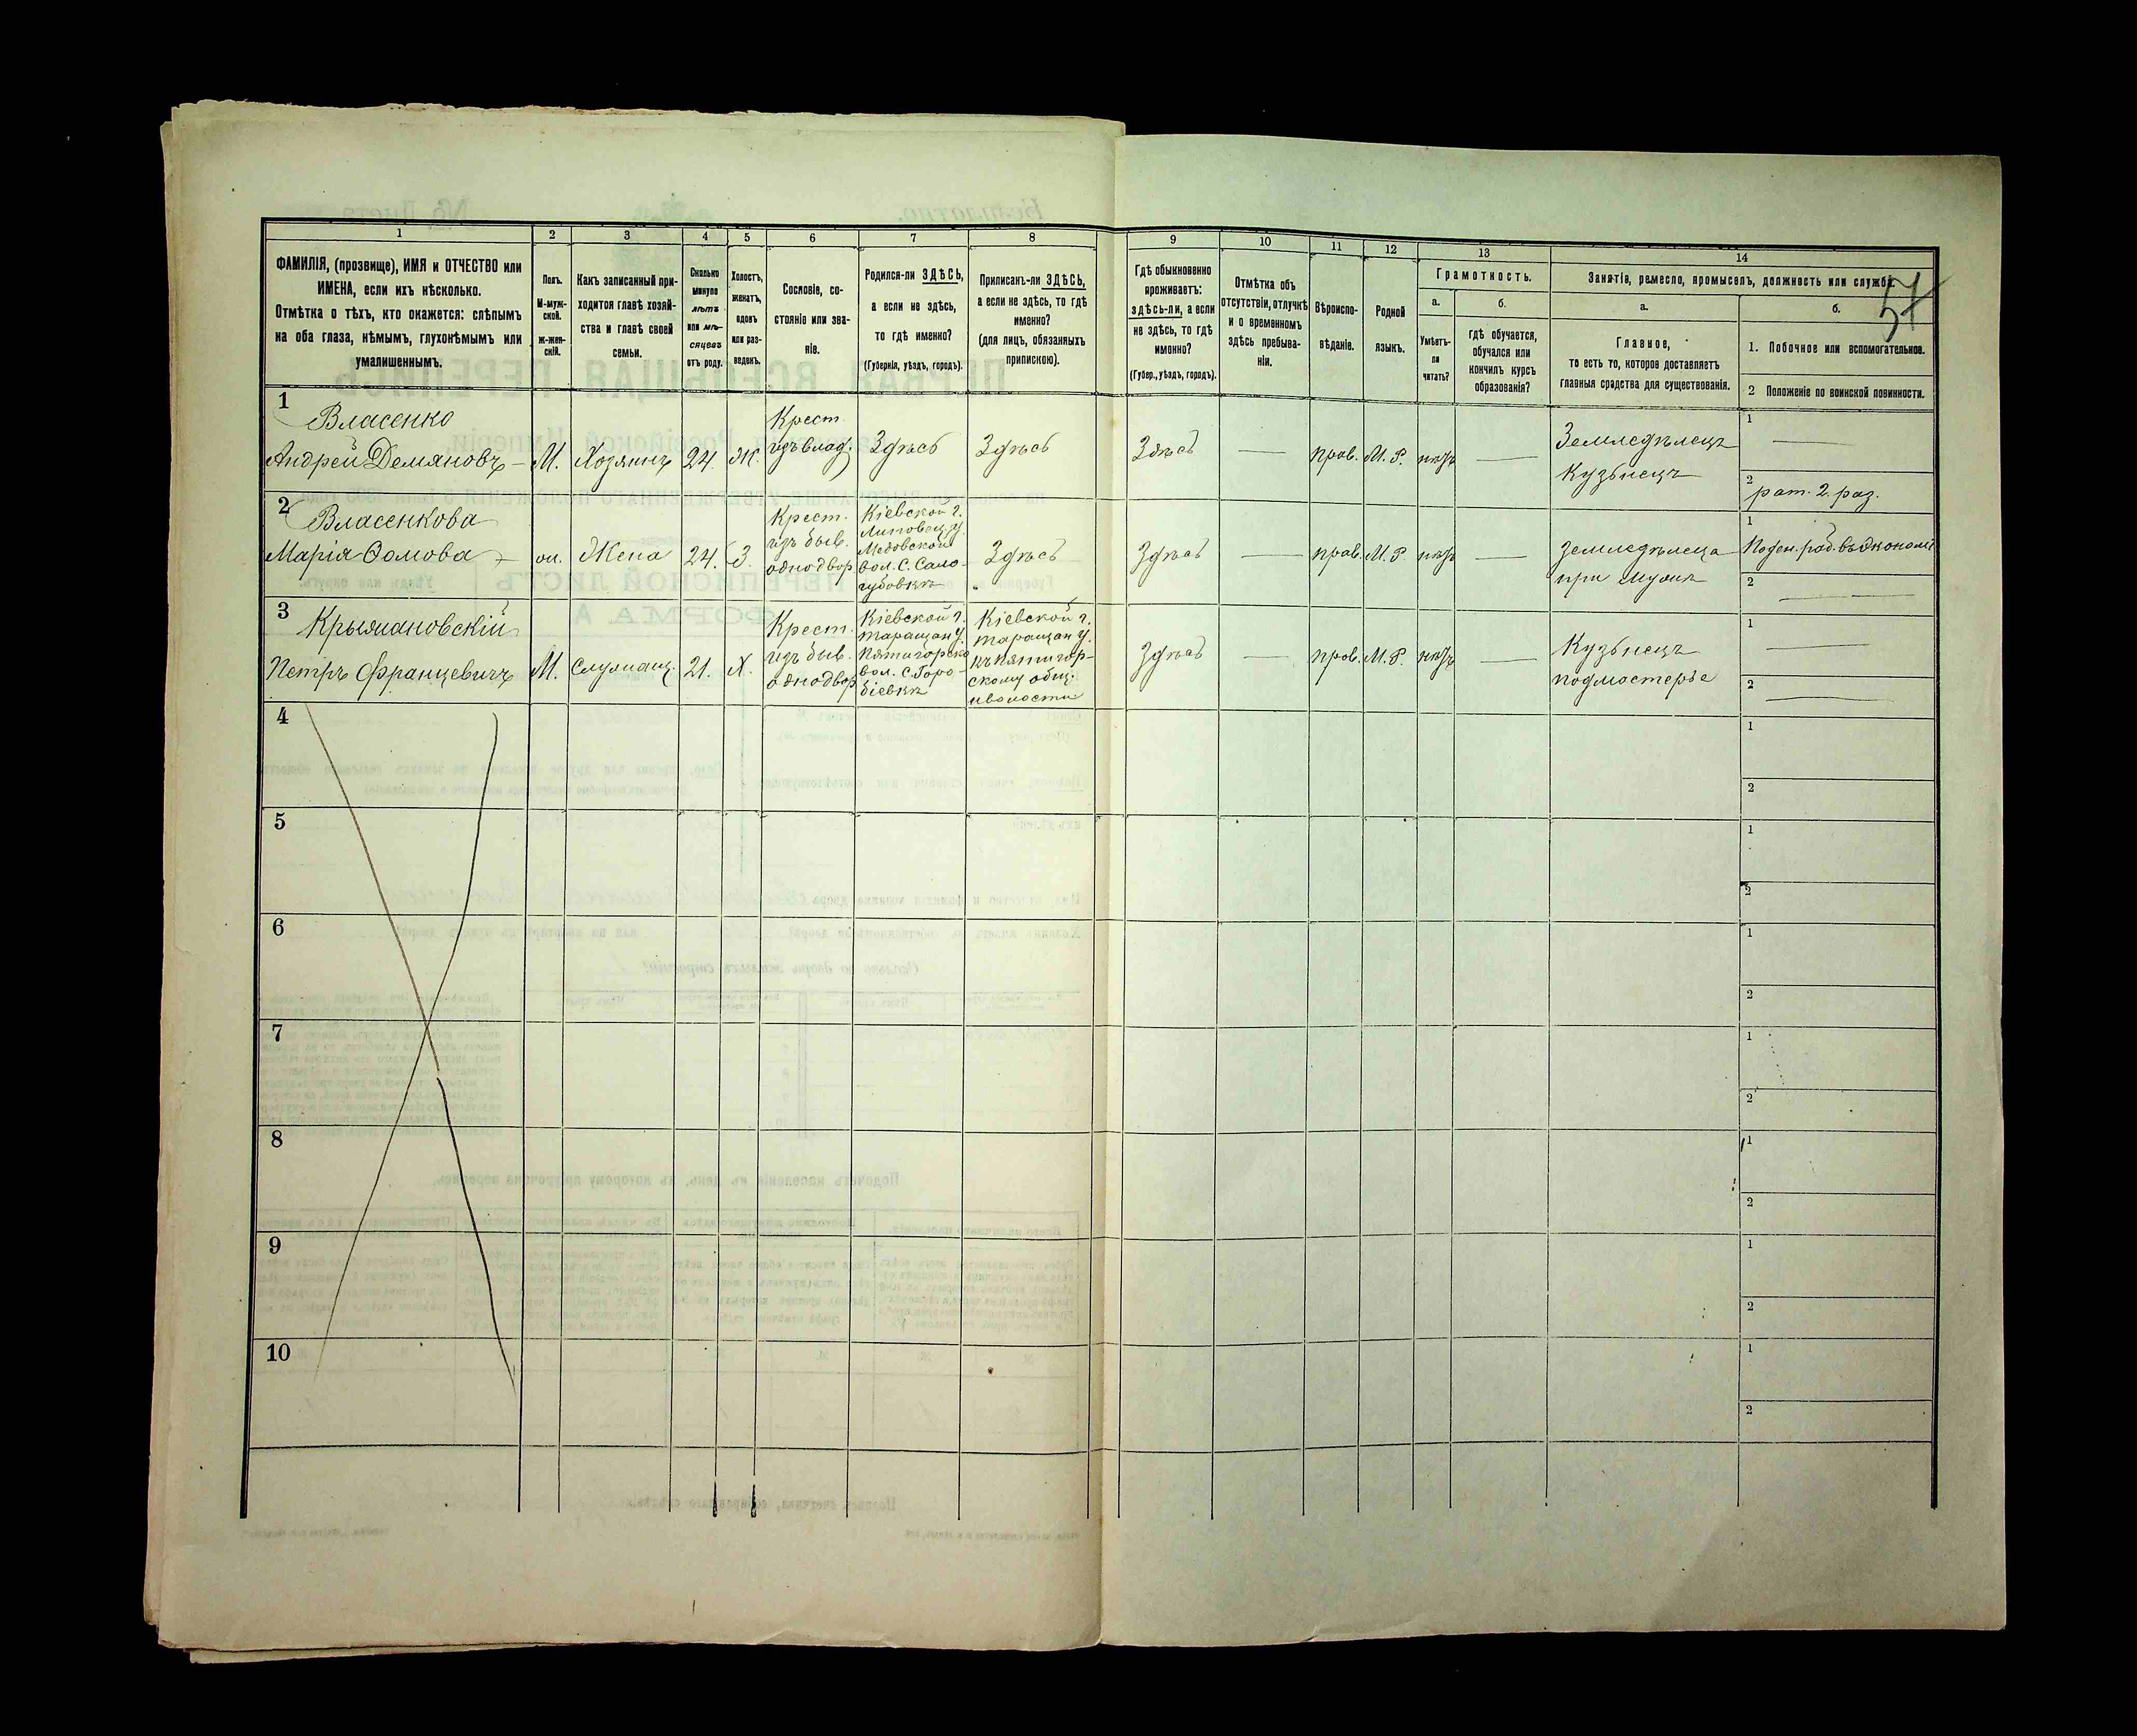 57
1 2 3 4 5 6 7 8 9 10 11 12 13 14
ФАМИЛІЯ, (прозвище), ИМЯ и ОТЧЕСТВО или
ИМЕНА, если ихъ нѣсколько.
Отмѣтка о тѣхъ, кто окажется: слѣпымъ
на оба глаза, нѣмымъ, глухонѣмымъ или
умалишеннымъ.
Полъ.
М-муж-
ской.
ж-жен-
скій.
Какъ записанный при-
ходится главѣ хозяй-
ства и главѣ своей
семьи.
Сколько
минуло
лѣтъ
или мѣ-
сяцевъ
отъ роду.
Холостъ,
женатъ,
вдовъ
или раз-
веденъ.
Сословіе, со-
стояніе или зва-
ніе.
Родился-ли ЗДѢСЬ,
а если не здѣсь,
то гдѣ именно?
(Губернія, уѣздъ, городъ).
Приписанъ-ли ЗДѢСЬ,
а если не здѣсь, то гдѣ
именно?
(для лицъ, обязанныхъ
припискою).
Гдѣ обыкновенно
проживаетъ:
здѣсь-ли, а если
не здѣсь, то гдѣ
именно?
(Губер., уѣздъ, городъ).
Отмѣтка объ
отсутствіи, отлучкѣ
и о временномъ
здѣсь пребыва-
ніи.
Вѣроиспо-
вѣданіе.
Родной
языкъ.
Грамотность.
а.
Умѣетъ-
ли
читать?
б.
Гдѣ обучается,
обучался или
кончилъ курсъ
образованія?
Занятія, ремесло, промыселъ, должность или служба.
а.
Главное,
то есть то, которое доставляетъ
главныя средства для существованія.
б.
1. Побочное или вспомогательное.
2 Положеніе по воинской повинности.
1
Власенко
Андрей Демяновъ
М.
Хозяинъ
24.
Ж.
Крест.
изъ влад.
Здѣсь
Здѣсь
Здѣсь
—
прав.
М. Р.
нѣтъ
—
Земледѣлецъ
Кузнецъ
1
—
2
рат. 2. раз.
2
Власенкова
Марія Ѳомова
Жена
24.
З.
Крест.
изъ быв.
однодвор
Кіевской г.
Липовец. у.
вол. С. Само-
Здѣсь
Здѣсь
—
прав.
М. Р
нѣтъ
—
Земледѣлеца
при мужѣ
1
Поден. раб. въ эконом
2
—
3
Петръ Францевичъ
М.
Служащ.
21.
Х.
Крест.
изъ быв.
однодвор
Кіевской г.
Таращан у.
Пятигорско
вол. С. Горо-
біевкѣ
Кіевской г.
Таращан у.
къ Пятигор-
скому общ.
и волости
Здѣсь
—
прав.
М. Р.
нѣтъ
—
Кузнецъ
подмастерье
1
—
2
—
4
1
2
5
1
2
6
1
2
7
1
2
8
1
2
9
1
2
10
1
2